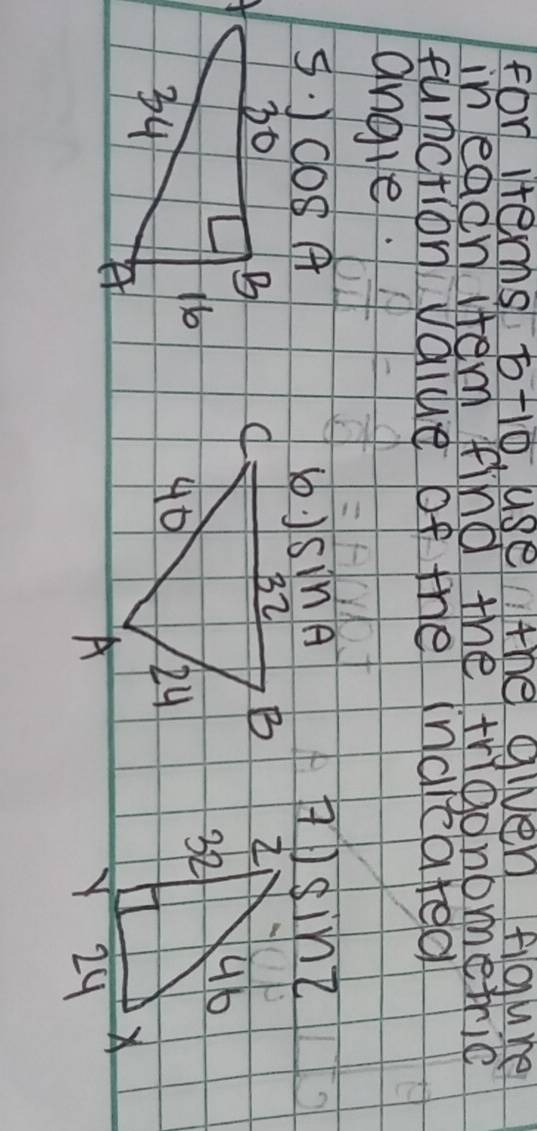 for items 5-10 use the given figure
in each item find the trigonometric
function value of the indicated
angle.
5.) cos A
6.) sin A
7.) sin Z
30
B
34
16
A
C
32
B
40
24
A
Z
32
40
Y
24
X